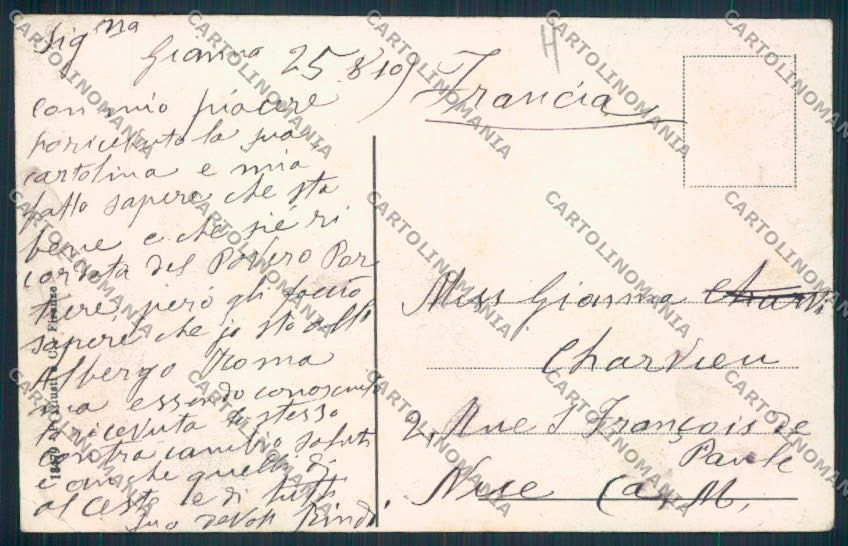 Sig^na
Gianna 25 8 10
con mio piacere
o ricevuto la sua
cartolina e mia
fatto sapere che sta
bene e che si e ri
cordata del Povero Por
tiere, però gli faccio
sapere che io sto allo
Albergo Roma
ma essendo conosciuto
lo ricevuta lo stesso
contracambio saluti
e anche quelli di
e di tutti
Suo devoti Bindi
Francia
Miss Gianna
Charvieu
2, Rue S François de
Paule
Nice (A. M.
18470
CARTOLINOMANIA